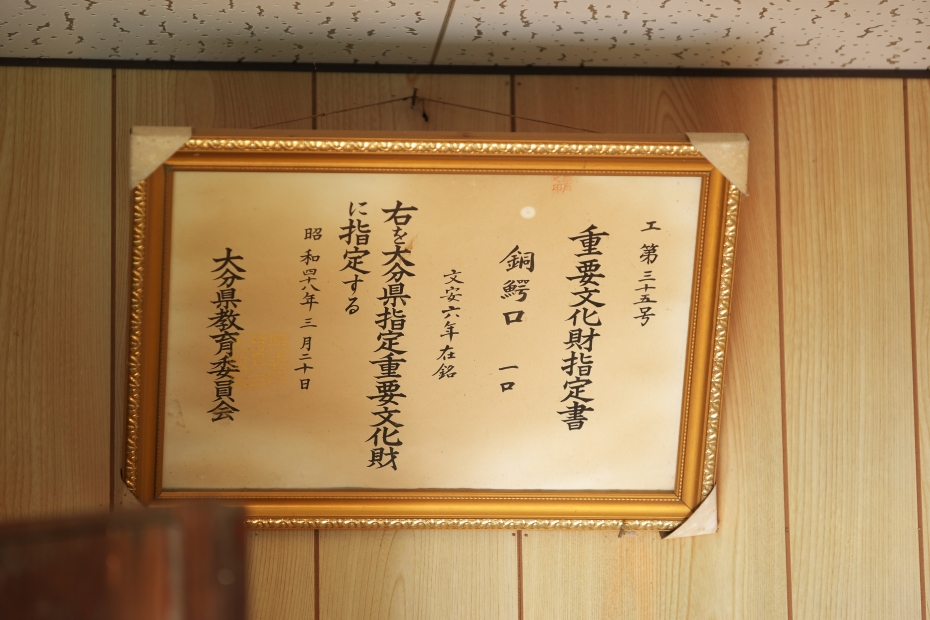 工第三十五号
重要文化財指定書
銅鰐口 一口
文安六年在銘
右を大分県指定重要文化財
に指定する
昭和四十八年三月二十日
大分県教育委員会